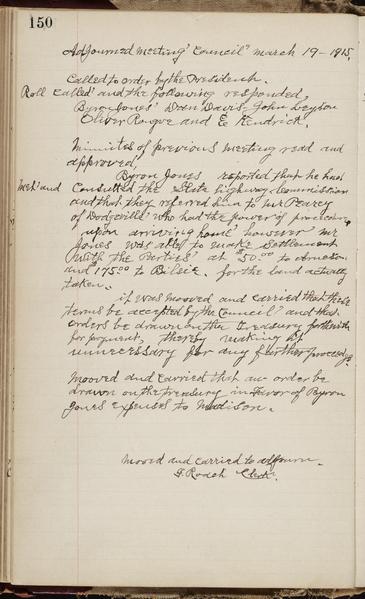 150
Adjourned Meeting Council March 19-1915,
Called to order by the President.
Roll Called and the following responded,
Byron Jones Dan Davis, John Leyson
Oliver Rogue and E Kendrick,
Minuites of previous meeting read and
approved,
Byron Jones reported that he had
met and Consulted the State highway Commission
and that they referred him to Mr
of Dodgeville who had the power of
upon arriving home however Mr
Jones was able to make settlement
with the Parties at $50.00 to
and $175.00 to for the land actually
taken.
it was mooved and carried that these
terms be accepted by the Council and that
orders be drawn on the Treasury forthwith
for payment, thereby making it
unnecessary for any further proceedings
Mooved and carried that an order be
drawn on the treasury in favor of Byron
Jones expenses to Madison.
Mooved and carried to adjourn.
T. Roach Clerk.